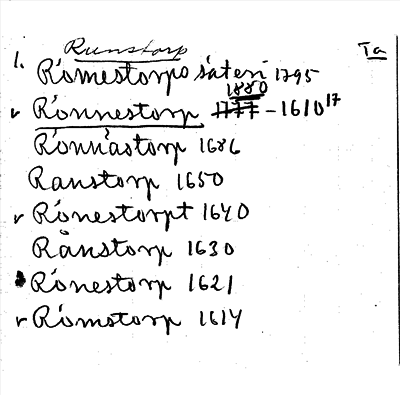 Runstorp
Ta
1. Römestorps säteri 1795
v Rönnestorp 1777 1880 - 1610 17
Rönnästorp 1686
Ranstorp 1650
v Rönestorpt 1640
Rånstorp 1630
Rönestorp 1621
v Römstorp 1614